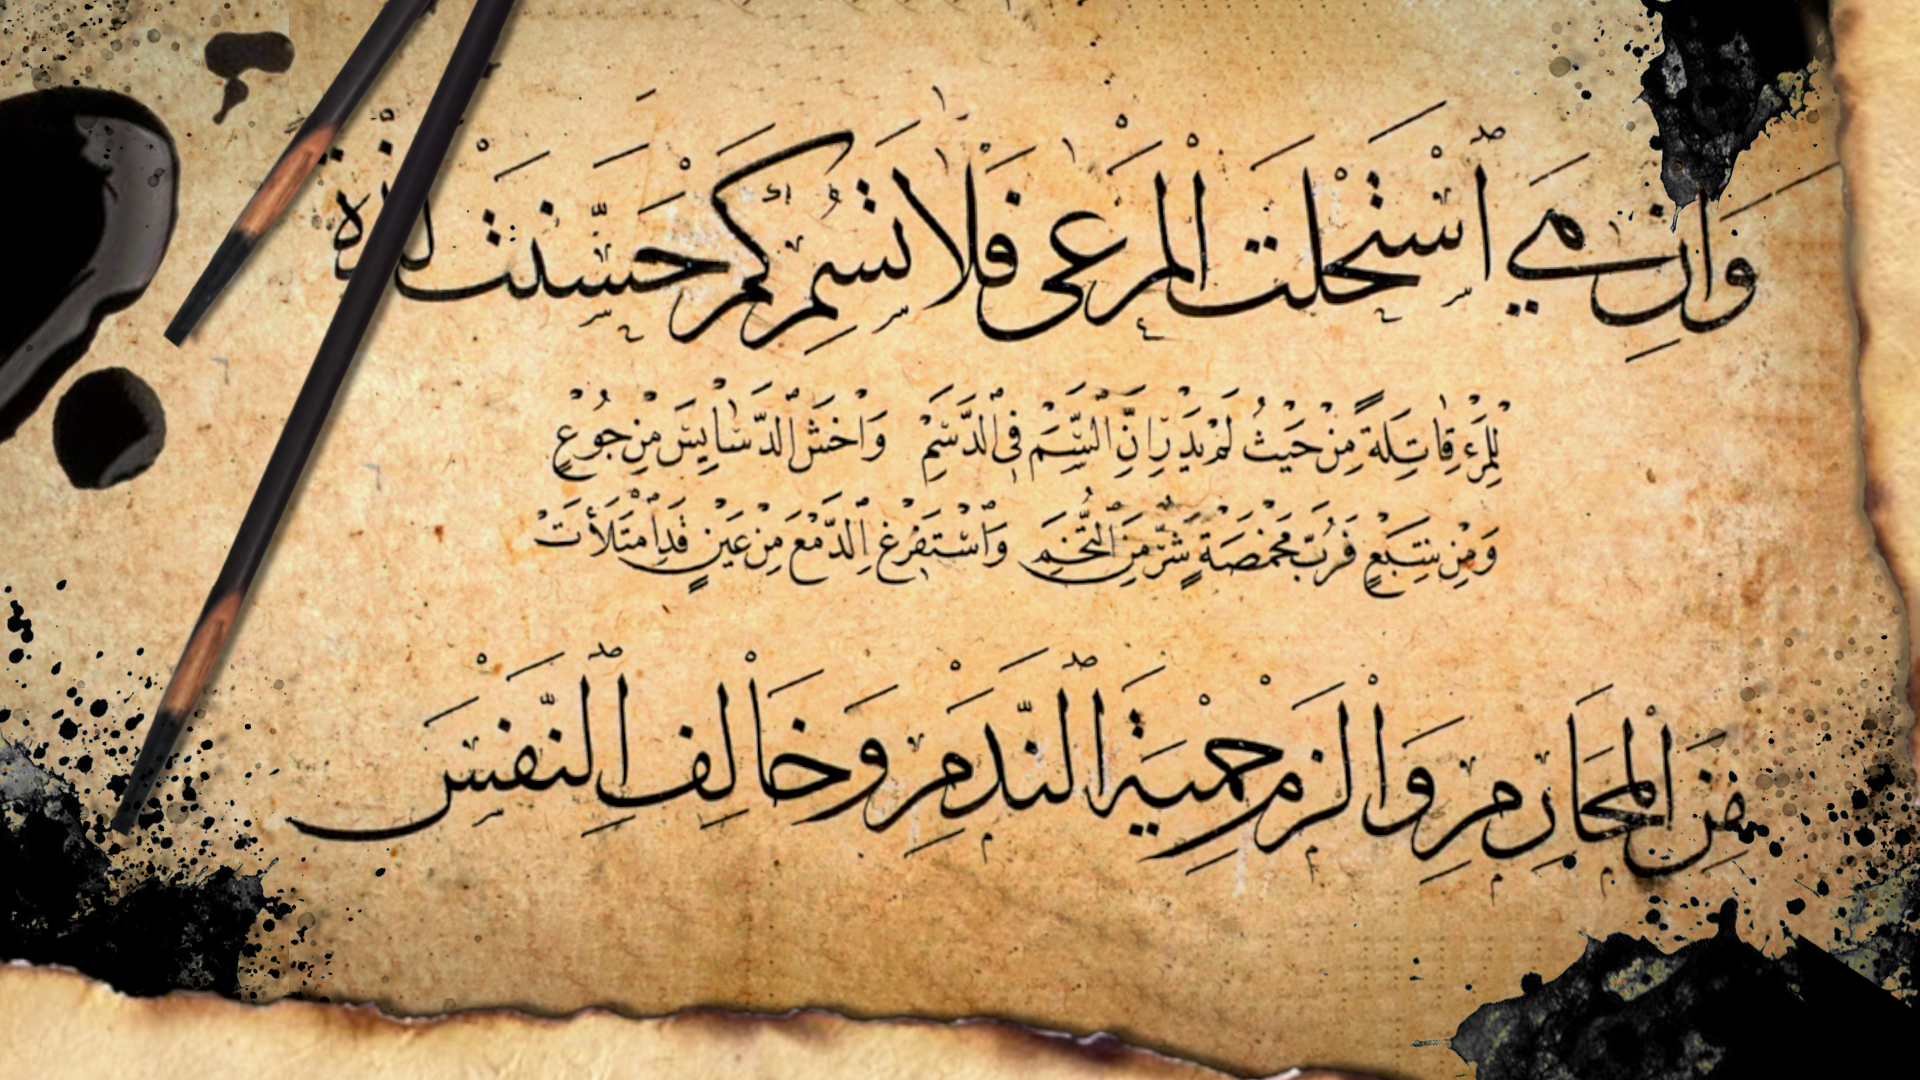 وَإِنْ هِيَ ٱسْتَحْلَتِ الْمَرْعَى فَلَا تُسِمِ كَمْ حَسَّنَتْ لَذَّةً
لِلْمَرْءِ قَاتِلَةً مِنْ حَيْثُ لَمْ يَدْرِ أَنَّ السَّمَّ فِي الدَّسَمِ وَاخْشَ الدَّسَائِسَ مِنْ جُوعٍ
وَمِنْ شِبَعٍ فَرُبَّ مَخْمَصَةٍ شَرٌّ مِنَ التُّخَمِ وَاسْتَفْرِغِ الدَّمْعَ مِنْ عَيْنٍ قَدِ امْتَلَأَتْ
مِنَ الْمَحَارِمِ وَالْزَمْ حِمْيَةَ ٱلنَّدَمِ وَخَالِفِ ٱلنَّفْسَ